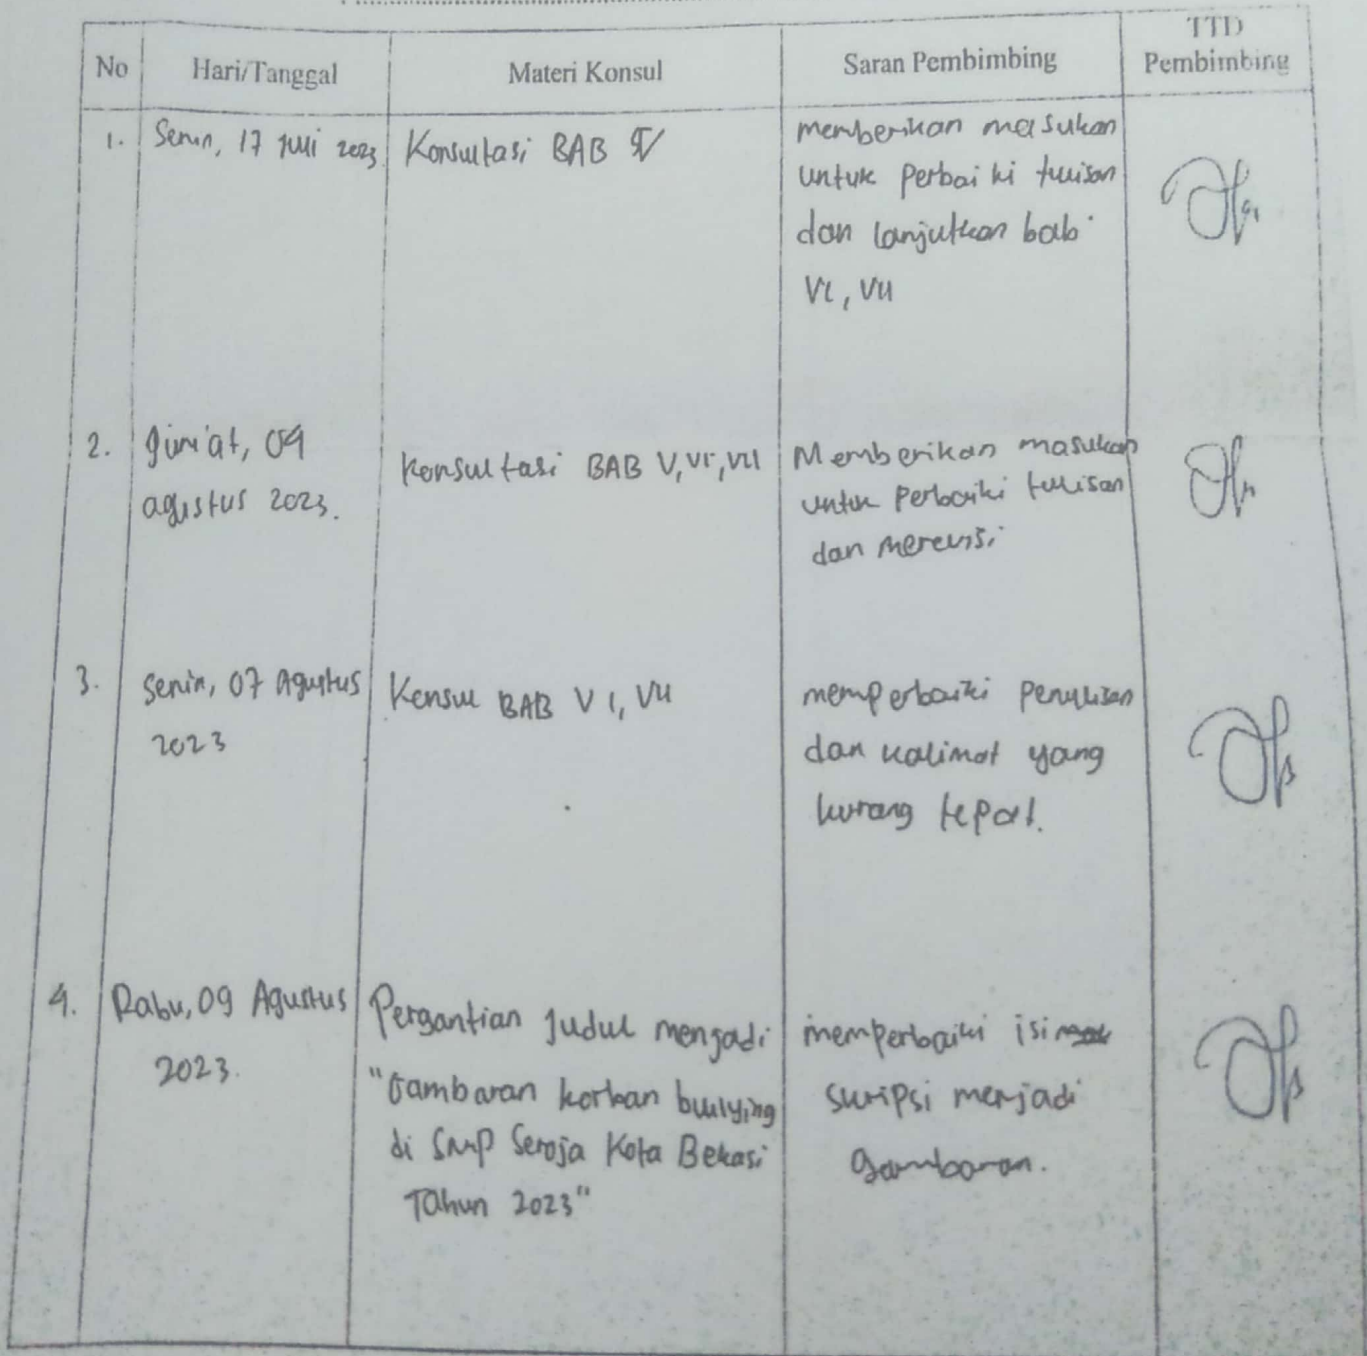 No Hari/Tanggal Materi Konsul Saran Pembimbing TTD Pembimbing
1. Senin, 17 Juli 2023 Konsultasi BAB V memberikan masukan
untuk perbaiki tulisan
dan lanjutkan bab
VI, VII
2. Jum'at, 04 agustus 2023. Konsultasi BAB V, VI, VII Memberikan masukan
untuk perbaiki tulisan
dan merevisi
3. Senin, 07 Agustus 2023 Konsul BAB VI, VII memperbaiki penulisan
dan kalimat yang
kurang tepat.
4. Rabu, 09 Agustus 2023. Pergantian Judul menjadi
"Gambaran korban bullying
di SMP Seroja Kota Bekasi
Tahun 2023"
memperbaiki isi
skripsi menjadi
gambaran.